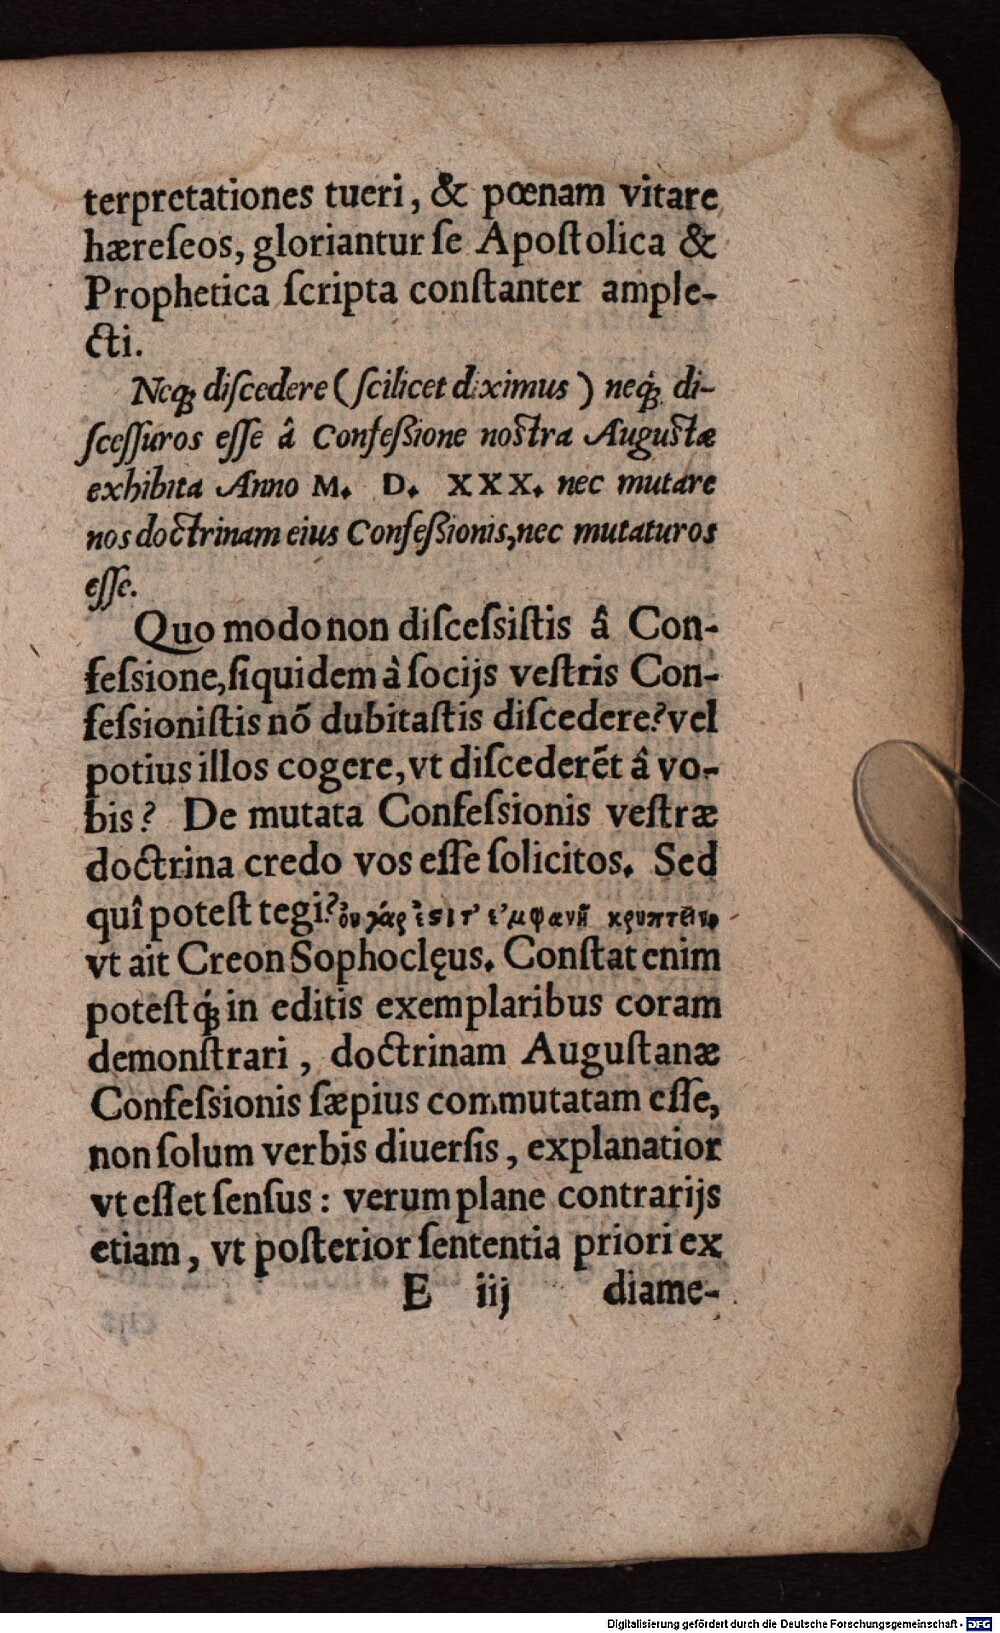 terpretationes tueri, & pœnam vitare
hæreſeos, gloriantur ſe Apoſtolica &
Prophetica ſcripta conſtanter ample-
cti.
Neq́; diſcedere (ſcilicet diximus) neq́; di-
ſceſſuros eſſe â Confeſsione noſtra Auguſtæ
exhibita Anno M. D. XXX. nec mutare
nos doctrinam eius Confeſsionis, nec mutaturos
eſſe.
Quo modo non diſceſsiſtis â Con-
feſsione, ſiquidem à ſocijs veſtris Con-
feſsioniſtis nõ dubitaſtis diſcedere? vel
potius illos cogere, vt diſcederẽt â vo-
bis? De mutata Confeſsionis veſtræ
doctrina credo vos eſſe ſolicitos. Sed
quî poteſt tegi? ὀυ γάρ ἐσιτ' ἐμφανῆ κρυπτειν,
vt ait Creon Sophoclęus. Conſtat enim
poteſtq́; in editis exemplaribus coram
demonſtrari, doctrinam Auguſtanæ
Confeſsionis ſæpius commutatam eſſe,
non ſolum verbis diuerſis, explanatior
vt eſſet ſenſus: verum plane contrarijs
etiam, vt poſterior ſententia priori ex
E iij diame-
Digitalisierung gefördert durch die Deutsche Forschungsgemeinschaft - DFG